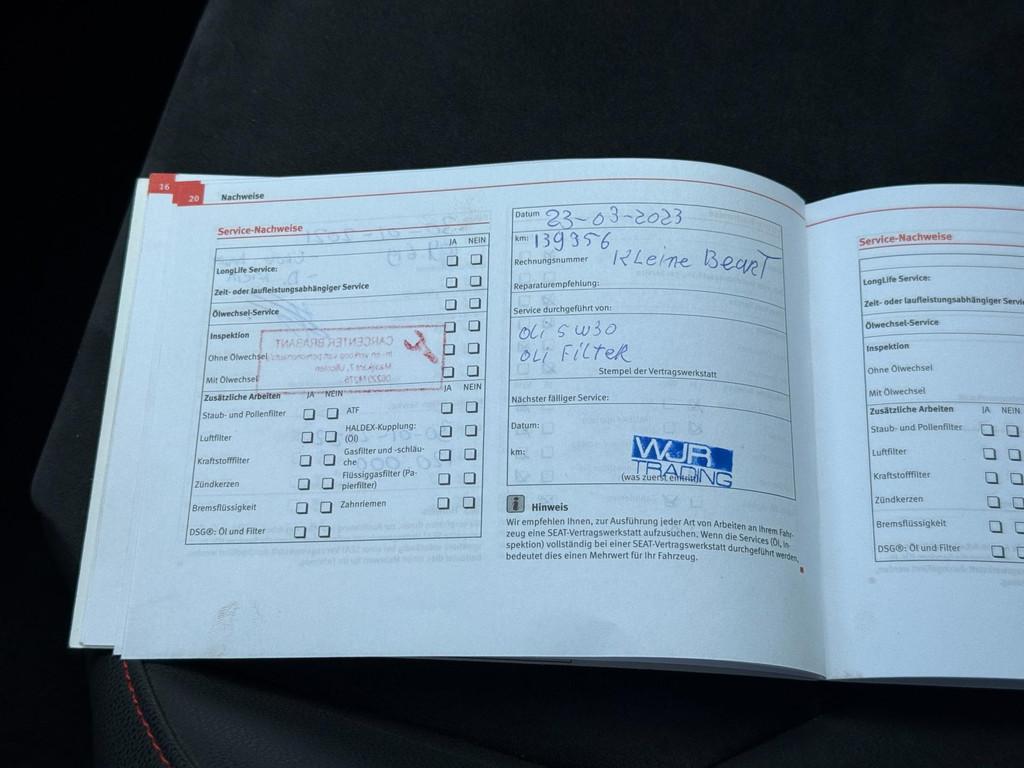 16
20
Nachweise
Service-Nachweise
JA NEIN
LongLife Service:
Zeit- oder laufleistungsabhängiger Service
Ölwechsel-Service
Inspektion
Ohne Ölwechsel
Mit Ölwechsel
Zusätzliche Arbeiten JA NEIN JA NEIN
Staub- und Pollenfilter ATF
Luftfilter HALDEX-Kupplung: (Öl)
Kraftstofffilter Gasfilter und -schläu-
che
Zündkerzen Flüssiggasfilter (Pa-
pierfilter)
Bremsflüssigkeit Zahnriemen
DSG®: Öl und Filter
CARCENTER BRABANT
Datum 23-03-2023
km: 139356
Rechnungsnummer KLeine BeurT
Reparaturempfehlung:
Service durchgeführt von:
OLi 5W30
OLi FiLTeR
Stempel der Vertragswerkstatt
Nächster fälliger Service:
Datum:
km:
WJR
TRADING
(was zuerst eintritt)
i Hinweis
Wir empfehlen Ihnen, zur Ausführung jeder Art von Arbeiten an Ihrem Fahr-
zeug eine SEAT-Vertragswerkstatt aufzusuchen. Wenn die Services (Öl, In-
spektion) vollständig bei einer SEAT-Vertragswerkstatt durchgeführt werden,
bedeutet dies einen Mehrwert für Ihr Fahrzeug.
Service-Nachweise
LongLife Service:
Zeit- oder laufleistungsabhängiger Servi
Ölwechsel-Service
Inspektion
Ohne Ölwechsel
Mit Ölwechsel
Zusätzliche Arbeiten JA NEIN
Staub- und Pollenfilter
Luftfilter
Kraftstofffilter
Zündkerzen
Bremsflüssigkeit
DSG®: Öl und Filter